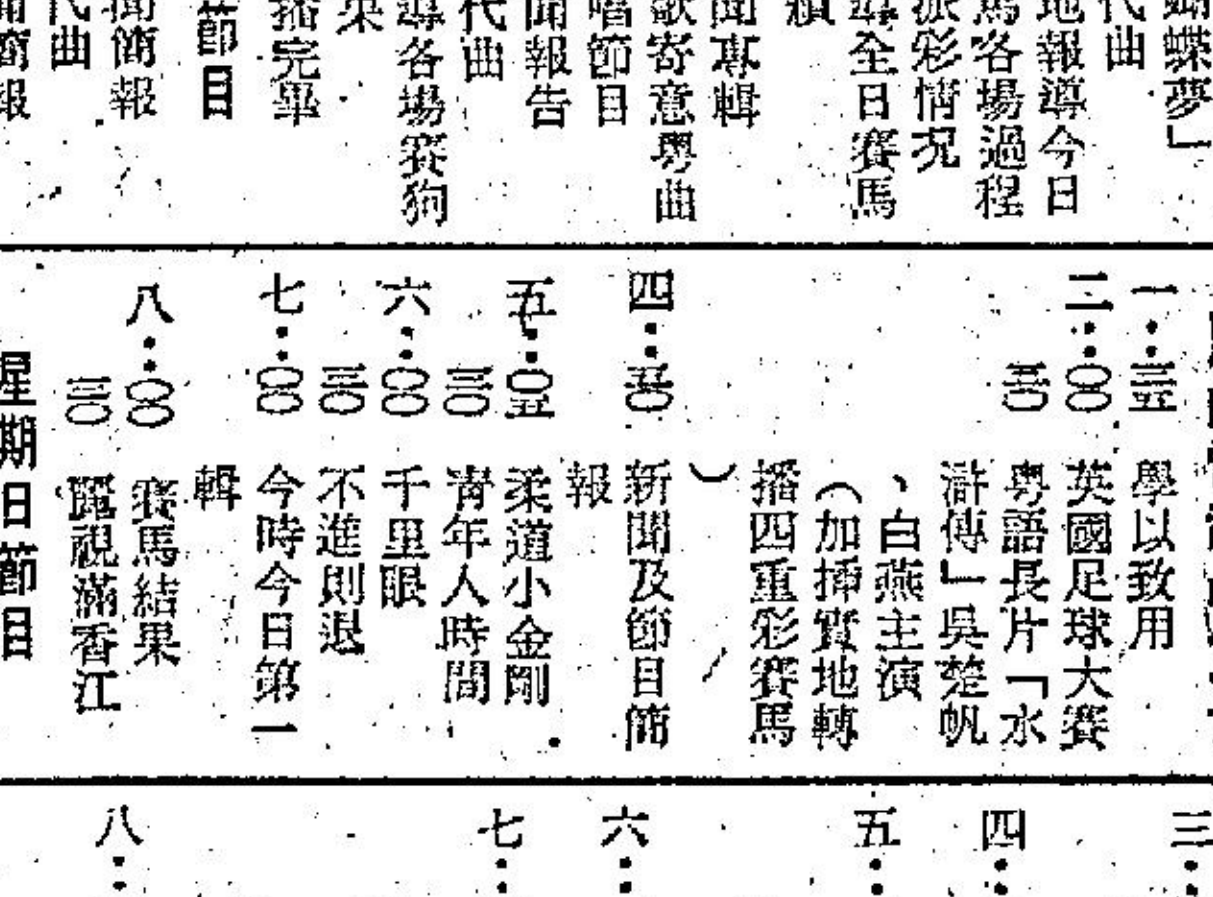 蝶夢」
代曲
地報導今日
馬各場過程
派彩情況
導全日賽馬
績
聞專輯
歌寄意粵曲
唱節目
聞報告
代曲
導各場賽狗
果
播完畢
節目
聞簡報
代曲
簡報
一：三五 學以致用
二：〇〇 英國足球大賽
五〇 粵語長片「水
滸傳」吳楚帆
、白燕主演
（加插實地轉
播四重彩賽馬
）
四：五〇 新聞及節目簡
報
五：〇五 柔道小金剛
三〇 青年人時間
六：〇〇 千里眼
三〇 不進則退
七：〇〇 今時今日第一
輯
八：〇〇 賽馬結果
三〇 麗視滿香江
星期日節目
三：
四：
五：
六：
七：
八：